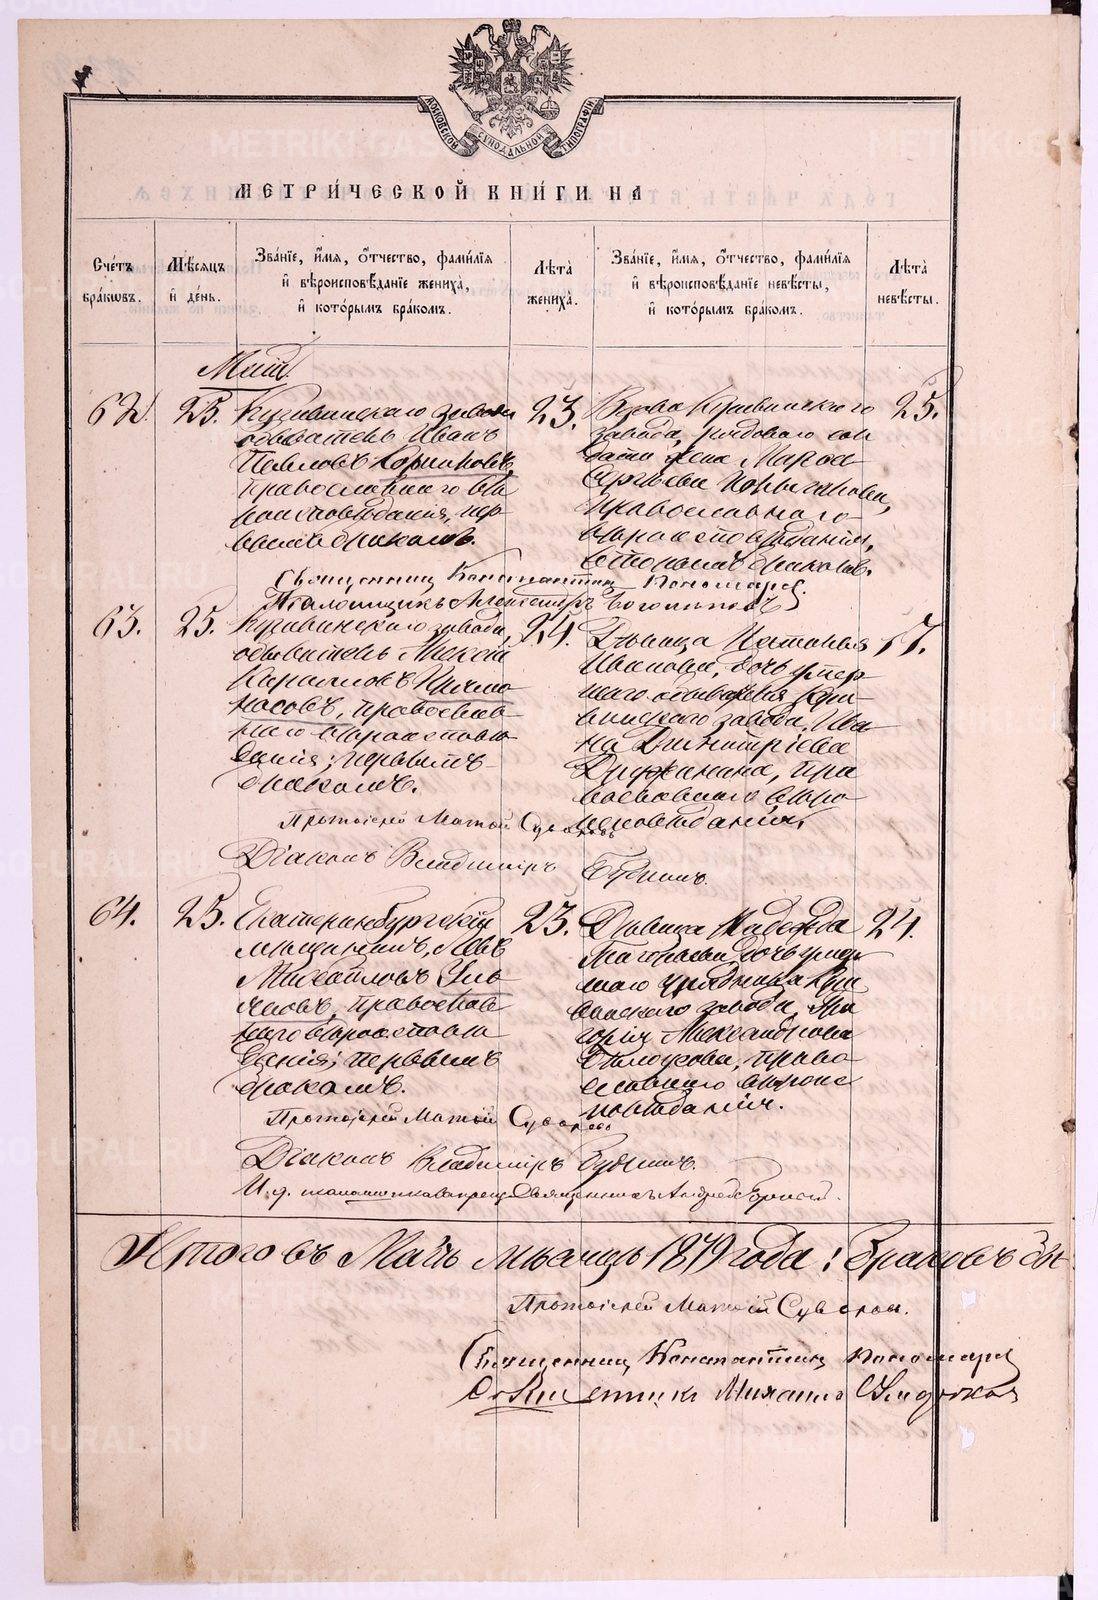 МОСКОВСКОЙ СУНОДАЛЬНОЙ ТИПОГРАФІИ
МЕТРИ́ЧЕСКОЙ КНИ́ГИ НА
Сче́тъ бра́кѡвъ.
Мѣ́сяцъ и҆ де́нь.
Зва́нїе, и҆́мя, ѻ҆́тчество, фами́лїя и҆ вѣроисповѣ́данїе жениха̀, и҆ кото́рымъ бра́комъ.
Лѣ́та жениха̀.
Зва́нїе, и҆́мя, ѻ҆́тчество, фами́лїя и҆ вѣроисповѣ́данїе невѣ́сты, и҆ кото́рымъ бра́комъ.
Лѣ́та невѣ́сты.
Май.
62. 25. 23. 25.
Кушвинскаго завода
обыватель Иванъ
Павловъ
православнаго вѣ
роисповѣданія, пер
вымъ бракомъ.
Вдова Кушвинскаго
завода, рядового сол
дата жена Марѳа
Сергѣева
православнаго
вѣроисповѣданія,
вторымъ бракомъ.
Священникъ Константинъ Пономаревъ.
Псаломщикъ Александръ
63. 25. 24. 17.
Кушвинскаго завода,
обыватель Алексѣй
Кирилловъ
православ
наго вѣроисповѣ
данія; первымъ
бракомъ.
Дѣвица Наталья
Иванова, дочь умер
шаго обывателя Куш
винскаго завода, Ива
на Димитріева
Дружинина, пра
вославнаго вѣро
исповѣданія.
Протоіерей Матѳій Суворовъ
Діаконъ Владиміръ Будринъ.
64. 25. 23. 24.
Екатеринбургскій
мѣщанинъ, Левъ
Михайловъ Улья
новъ, православ
наго вѣроисповѣ
данія; первымъ
бракомъ.
Дѣвица Надежда
Григорьева дочь умер
шаго урядника Куш
винскаго завода, Гри
горія Александрова
Бѣлоусова, право
славнаго вѣроис
повѣданія.
Протоіерей Матѳій Суворовъ
Діаконъ Владиміръ Будринъ.
И. д. псаломщика Священникъ Андрей
Итого въ Маѣ мѣсяцѣ 1879 года: браковъ
Протоіерей Матѳій Суворовъ.
Священникъ Константинъ Пономаревъ
Священникъ Михаилъ
METRIKI.GASO-URAL.RU